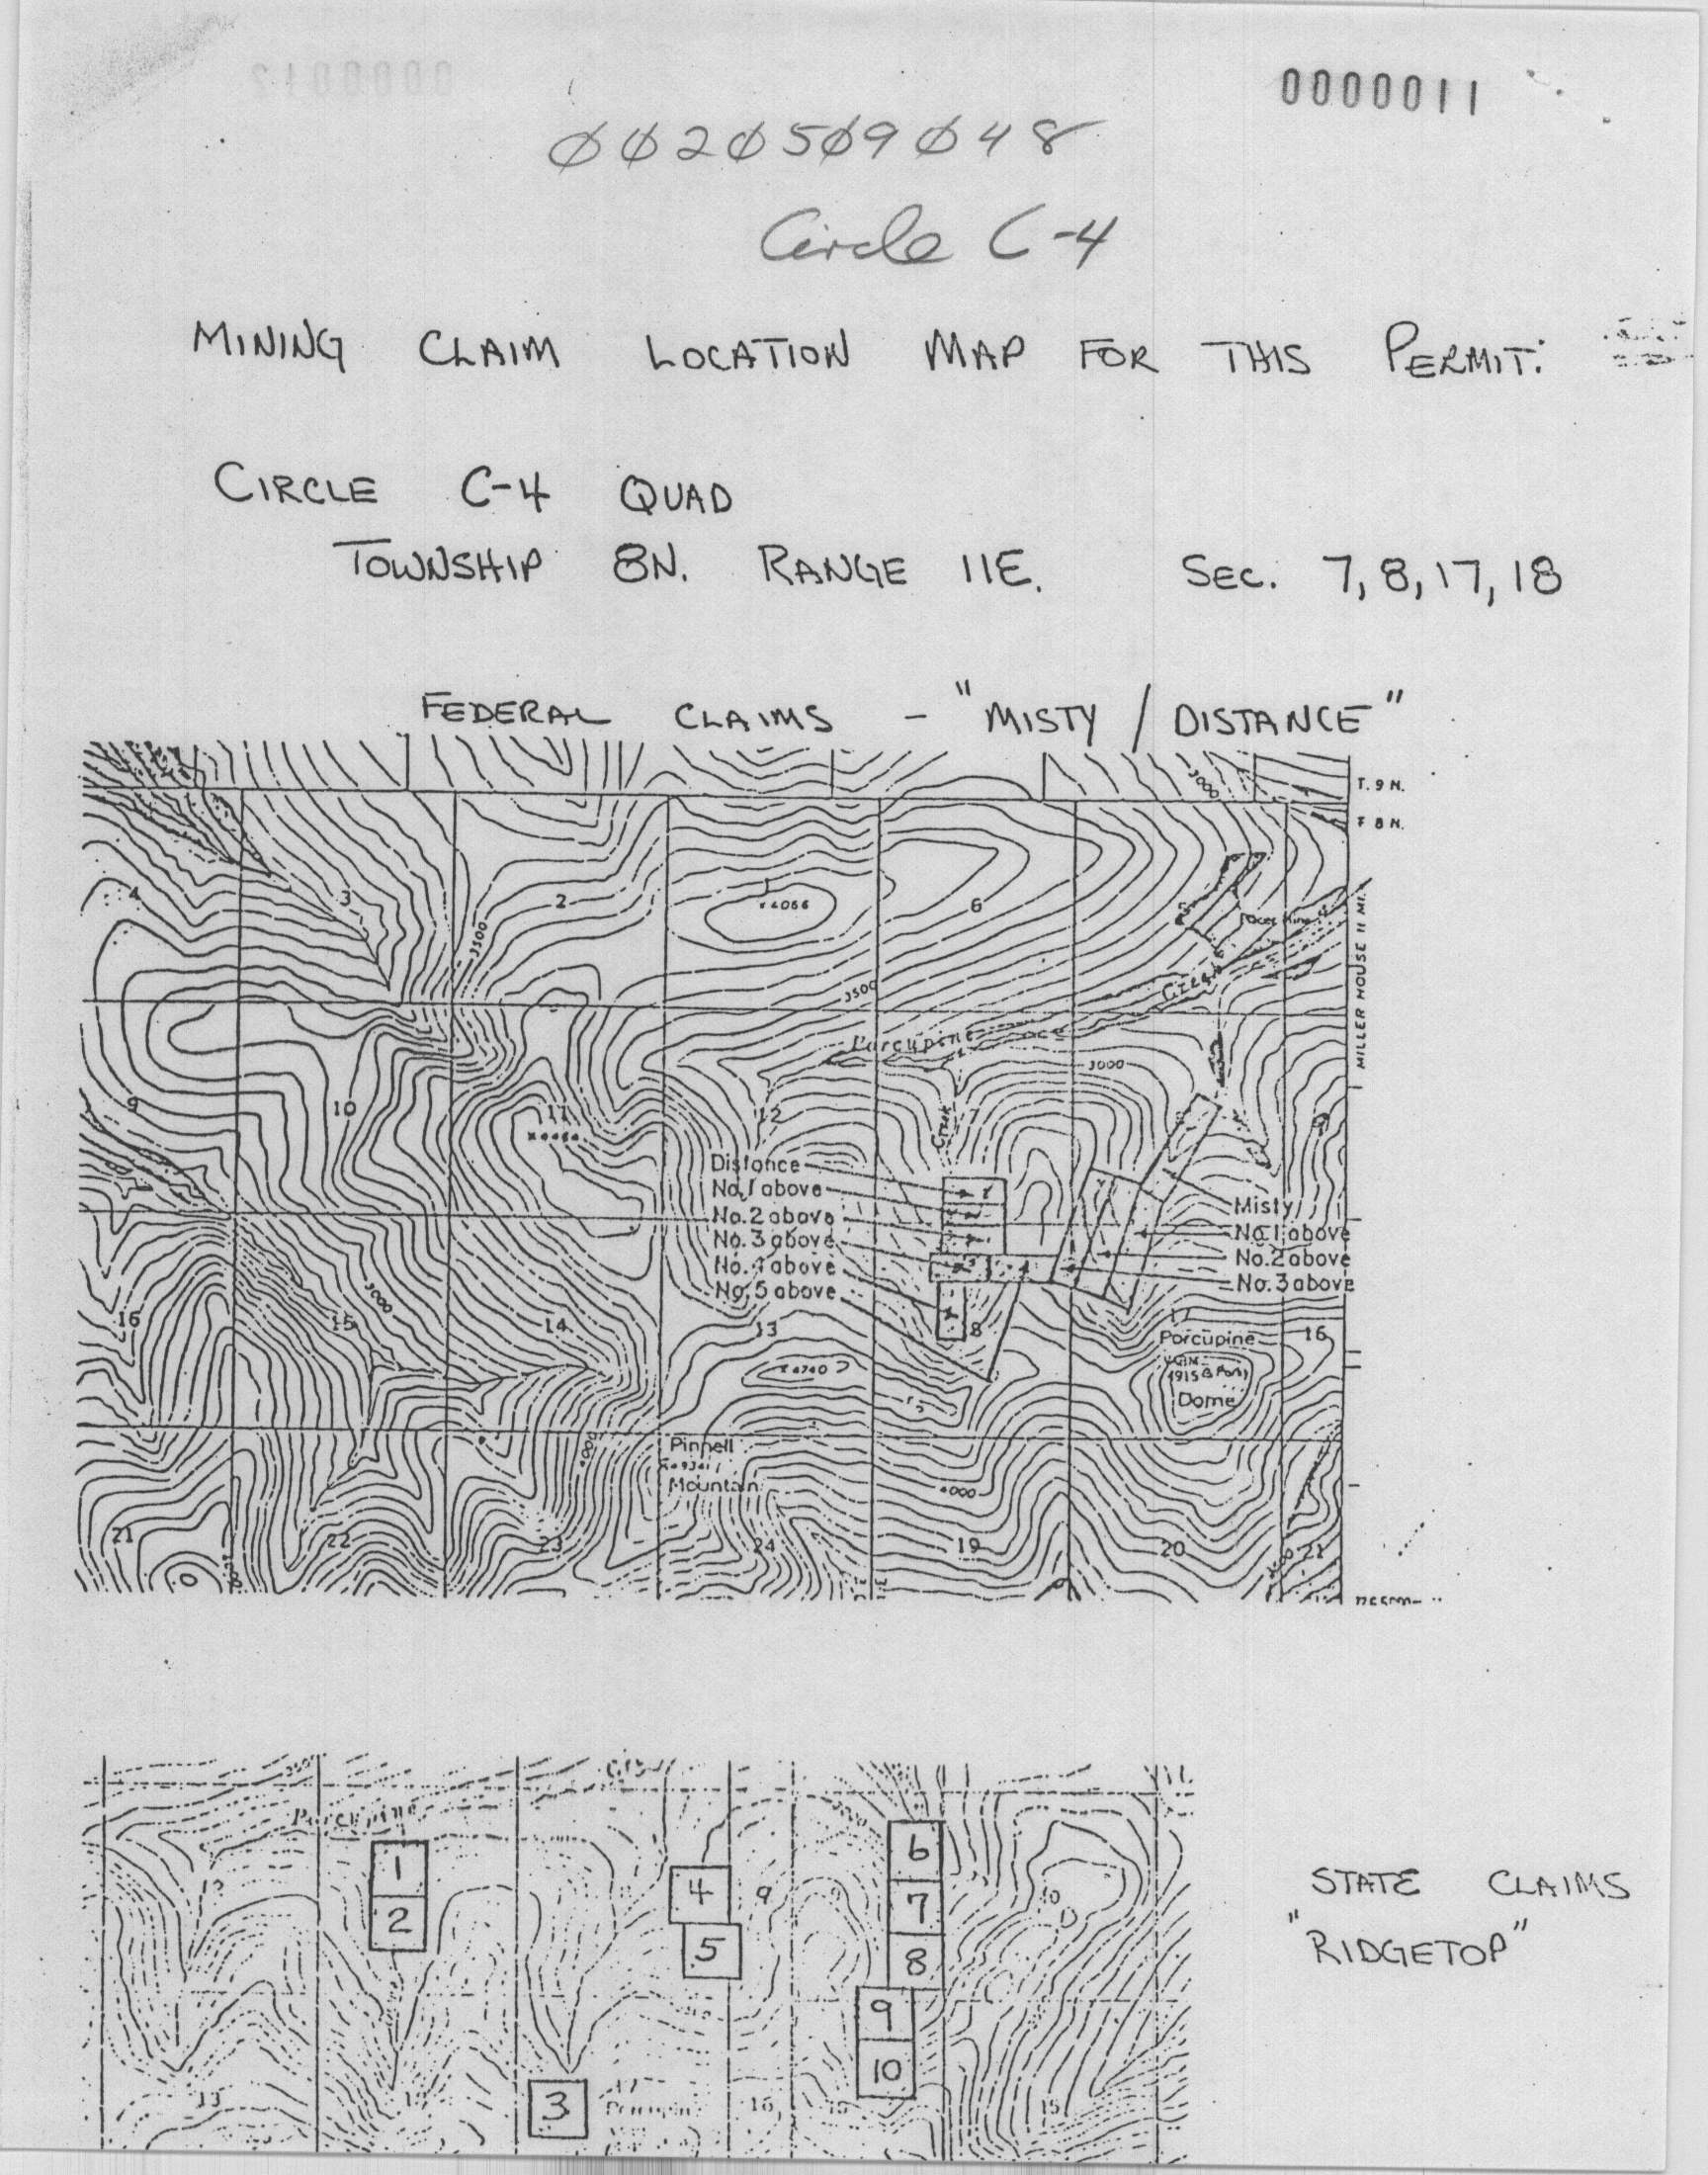 0000011
0020509048
Circle C-4
MINING CLAIM LOCATION MAP FOR THIS PERMIT:
CIRCLE C-4 QUAD
TOWNSHIP 8N. RANGE 11E. SEC. 7, 8, 17, 18
FEDERAL CLAIMS - "MISTY / DISTANCE"
3000
T. 9 N.
T 8 N.
4
3
2
1
x 4066
6
3500
3500
Creek
MILLER HOUSE 11 MI.
Porcupine
3000
9
10
11
12
Creek
Distance
No. 1 above
No. 2 above
No. 3 above
No. 4 above
No. 5 above
Misty
No. 1 above
No. 2 above
No. 3 above
16
3000
15
14
13
x 4740
8
17
Porcupine
Dome
16
Pinnell
Mountain
4000
4000
21
22
23
24
19
20
21
Porcupine
1
2
3
4
9
5
6
7
8
9
10
13
16
15
STATE CLAIMS
"RIDGETOP"